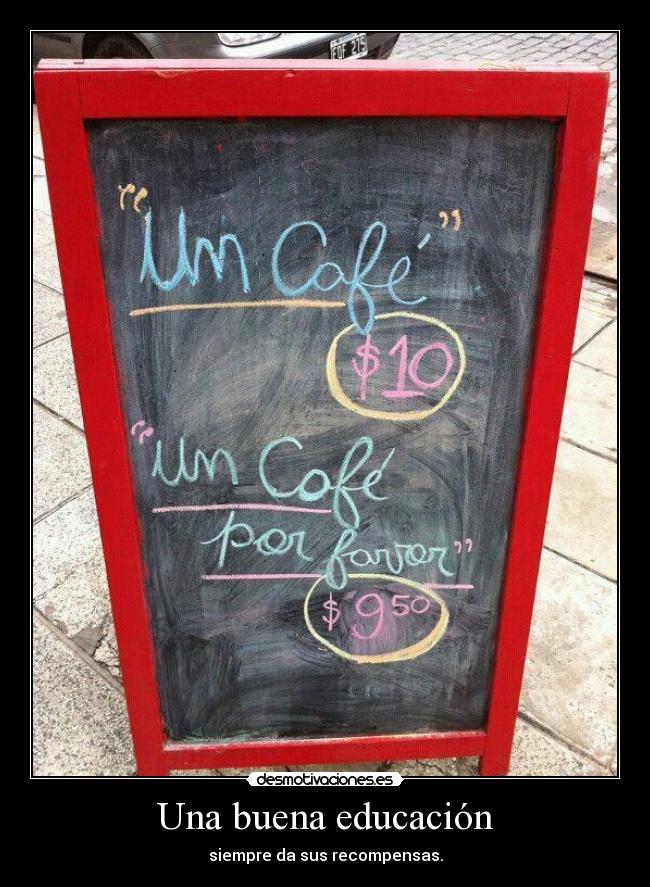 EQF 275
“Un Café”
$10
“Un Café
por favor”
$9⁵⁰
desmotivaciones.es
Una buena educación
siempre da sus recompensas.